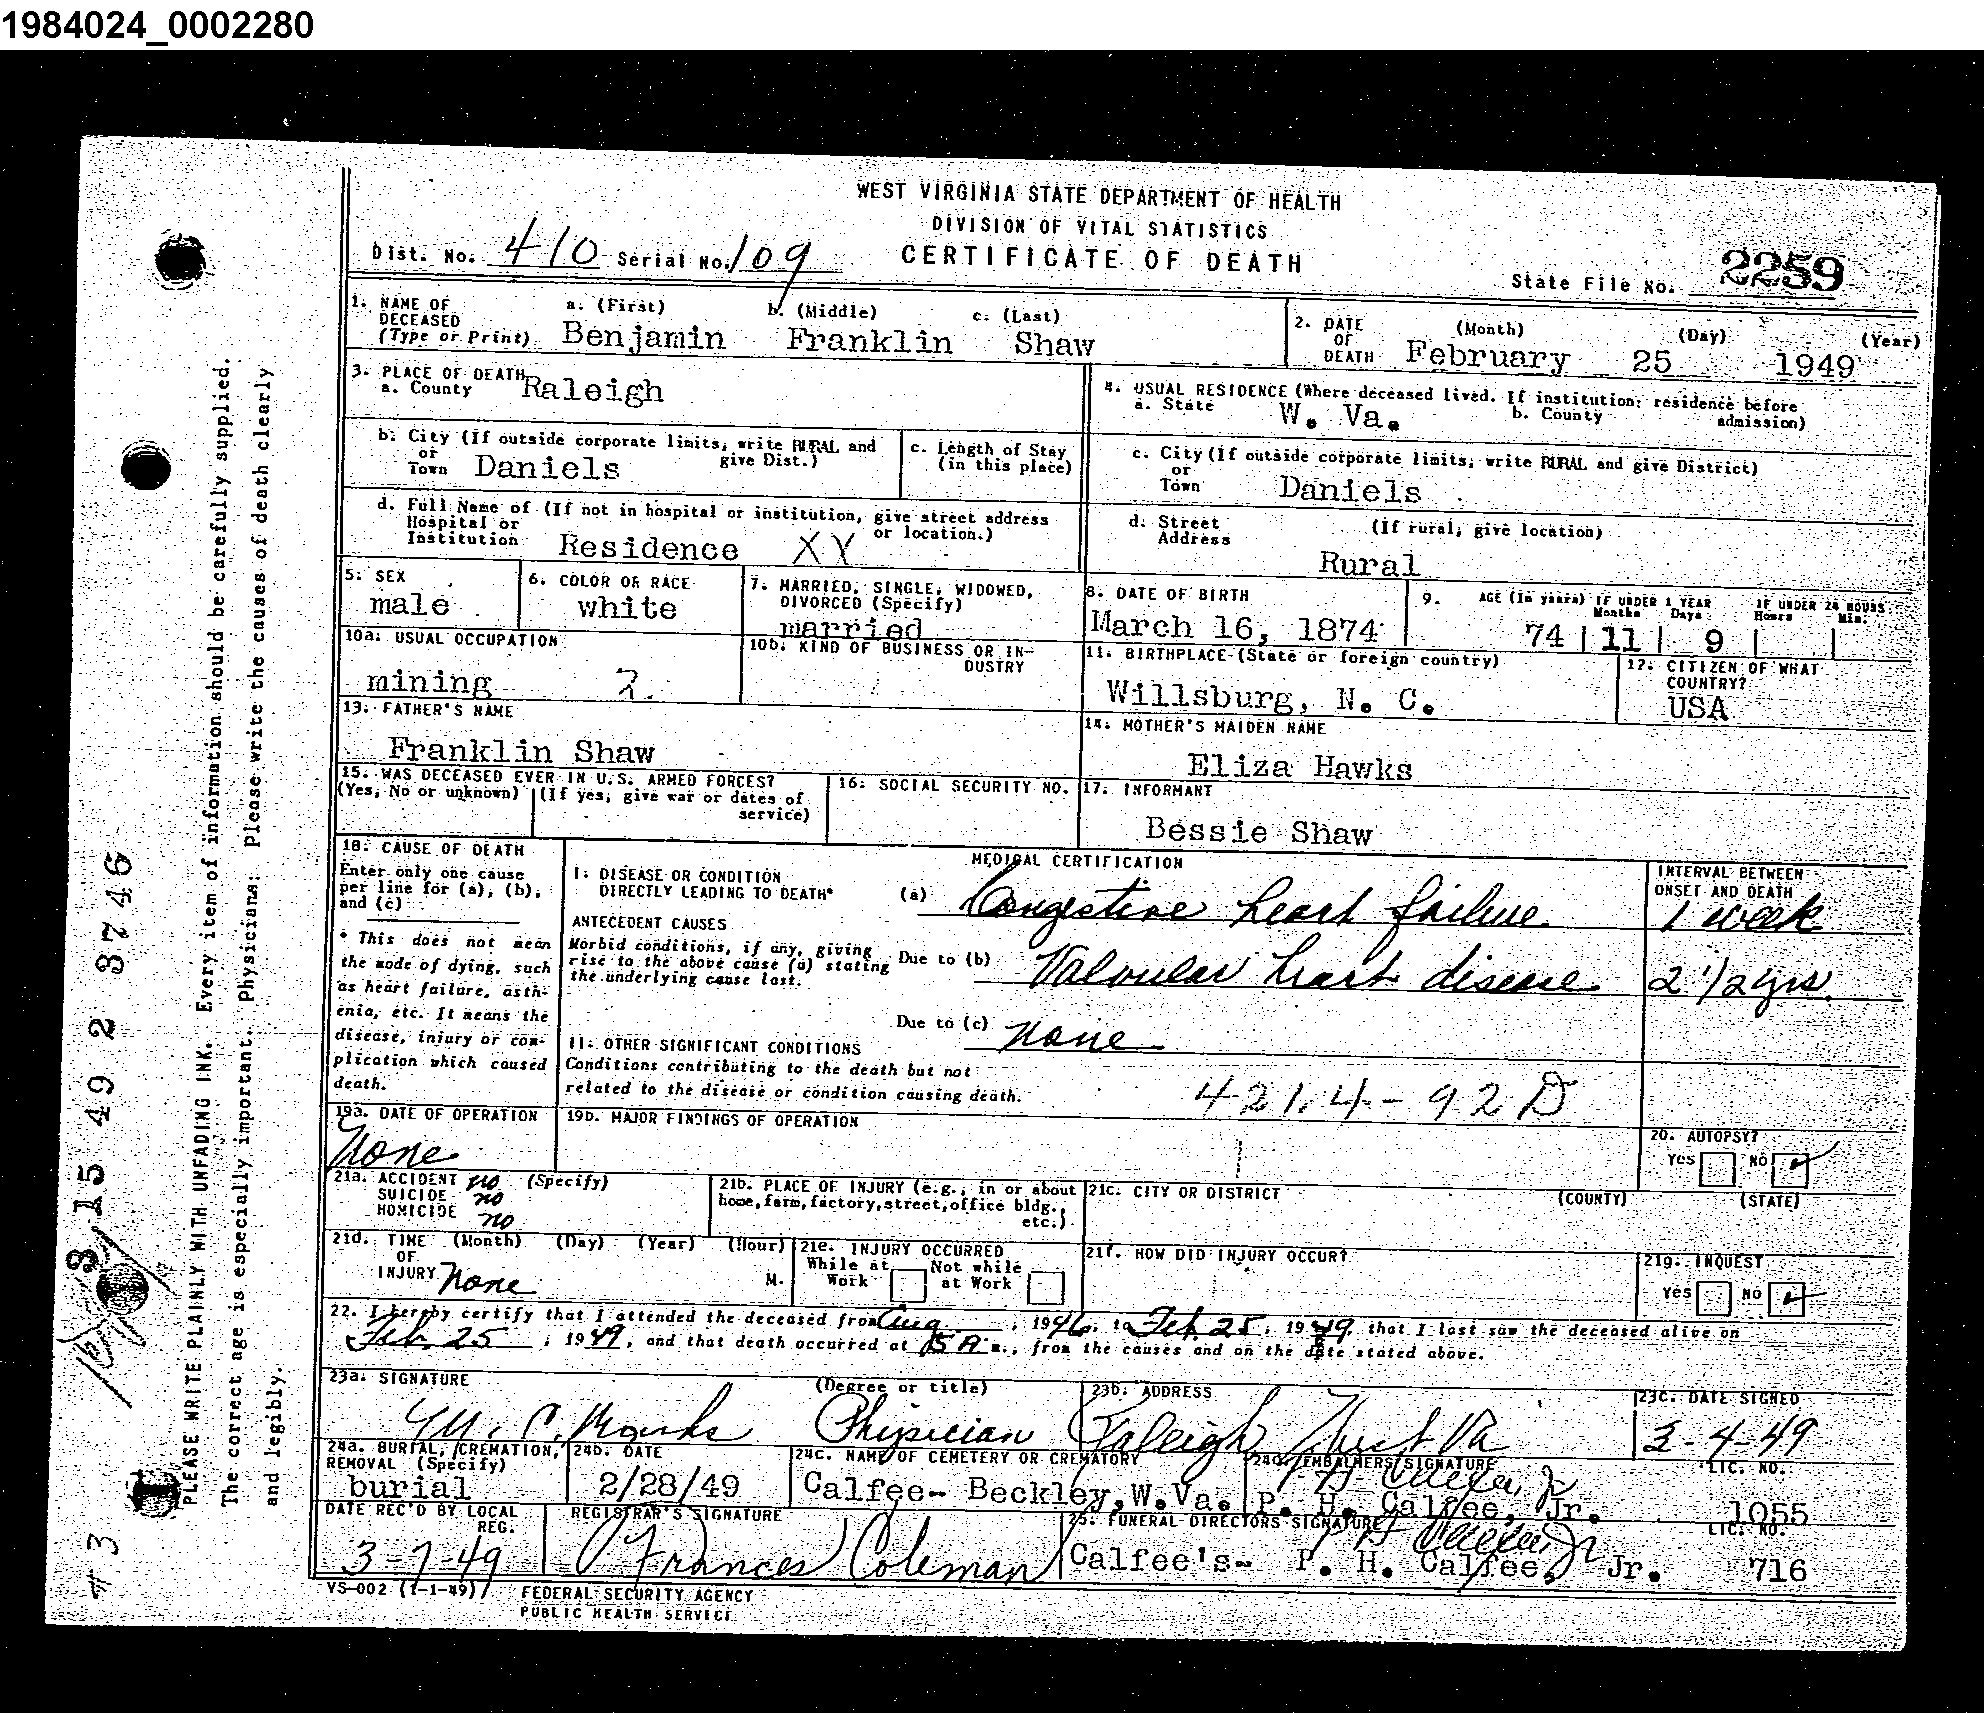 1984024_0002280
WEST VIRGINIA STATE DEPARTMENT OF HEALTH
DIVISION OF VITAL STATISTICS
CERTIFICATE OF DEATH
Dist. No. 410 Serial No. 109
State File No. 2259
1. NAME OF DECEASED (Type or Print) a. (First) b. (Middle) c. (Last)
Benjamin Franklin Shaw
2. DATE OF DEATH (Month) (Day) (Year)
February 25 1949
3. PLACE OF DEATH
a. County Raleigh
4. USUAL RESIDENCE (Where deceased lived. If institution: residence before admission)
a. State W. Va. b. County
b. City (If outside corporate limits, write RURAL and give Dist.)
or Town Daniels
c. Length of Stay (in this place)
c. City (If outside corporate limits, write RURAL and give District)
or Town Daniels
d. Full Name of (If not in hospital or institution, give street address or location.)
Hospital or Institution Residence XY
d. Street Address (If rural, give location)
Rural
5. SEX male
6. COLOR OR RACE white
7. MARRIED, SINGLE, WIDOWED, DIVORCED (Specify) married
8. DATE OF BIRTH March 16, 1874
9. AGE (In years) IF UNDER 1 YEAR Months Days IF UNDER 24 HOURS Hours Min.
74 11 9
10a. USUAL OCCUPATION
mining
10b. KIND OF BUSINESS OR INDUSTRY
11. BIRTHPLACE (State or foreign country)
Willsburg, N. C.
12. CITIZEN OF WHAT COUNTRY?
USA
13. FATHER'S NAME
Franklin Shaw
14. MOTHER'S MAIDEN NAME
Eliza Hawks
15. WAS DECEASED EVER IN U.S. ARMED FORCES?
(Yes, No or unknown) (If yes, give war or dates of service)
16. SOCIAL SECURITY NO.
17. INFORMANT
Bessie Shaw
18. CAUSE OF DEATH
Enter only one cause per line for (a), (b), and (c)
* This does not mean the mode of dying, such as heart failure, asthenia, etc. It means the disease, injury or complication which caused death.
MEDICAL CERTIFICATION
INTERVAL BETWEEN ONSET AND DEATH
I. DISEASE OR CONDITION DIRECTLY LEADING TO DEATH*
(a) Congestive heart failure 1 week
ANTECEDENT CAUSES
Morbid conditions, if any, giving rise to the above cause (a) stating the underlying cause last.
Due to (b) Valvular heart disease 2 1/2 yrs.
Due to (c) None
II. OTHER SIGNIFICANT CONDITIONS
Conditions contributing to the death but not related to the disease or condition causing death.
421.4 - 92 D
19a. DATE OF OPERATION
None
19b. MAJOR FINDINGS OF OPERATION
20. AUTOPSY?
Yes NO
21a. ACCIDENT no (Specify)
SUICIDE no
HOMICIDE no
21b. PLACE OF INJURY (e.g., in or about home, farm, factory, street, office bldg., etc.)
21c. CITY OR DISTRICT (COUNTY) (STATE)
21d. TIME OF INJURY (Month) (Day) (Year) (Hour)
None M.
21e. INJURY OCCURRED
While at Work Not while at Work
21f. HOW DID INJURY OCCUR?
21g. INQUEST
Yes NO
22. I hereby certify that I attended the deceased from Aug, 1946, to Feb. 25, 1949, that I last saw the deceased alive on
Feb. 25, 1949, and that death occurred at m., from the causes and on the date stated above.
23a. SIGNATURE (Degree or title)
Physician
23b. ADDRESS
Raleigh, West Va
23c. DATE SIGNED
3-4-49
24a. BURIAL, CREMATION, REMOVAL (Specify)
burial
24b. DATE
2/28/49
24c. NAME OF CEMETERY OR CREMATORY
Calfee- Beckley, W.Va.
24d. EMBALMERS SIGNATURE LIC. NO.
P. H. Calfee, Jr. 1055
DATE REC'D BY LOCAL REG.
3-7-49
REGISTRAR'S SIGNATURE
Frances Coleman
25. FUNERAL DIRECTORS SIGNATURE LIC. NO.
Calfee's- P. H. Calfee, Jr. 716
VS-002 (1-1-49)
FEDERAL SECURITY AGENCY
PUBLIC HEALTH SERVICE
PLEASE WRITE PLAINLY WITH UNFADING INK. Every item of information should be carefully supplied.
The correct age is especially important. Physicians: Please write the causes of death clearly
and legibly.
3 15 49 2 3746